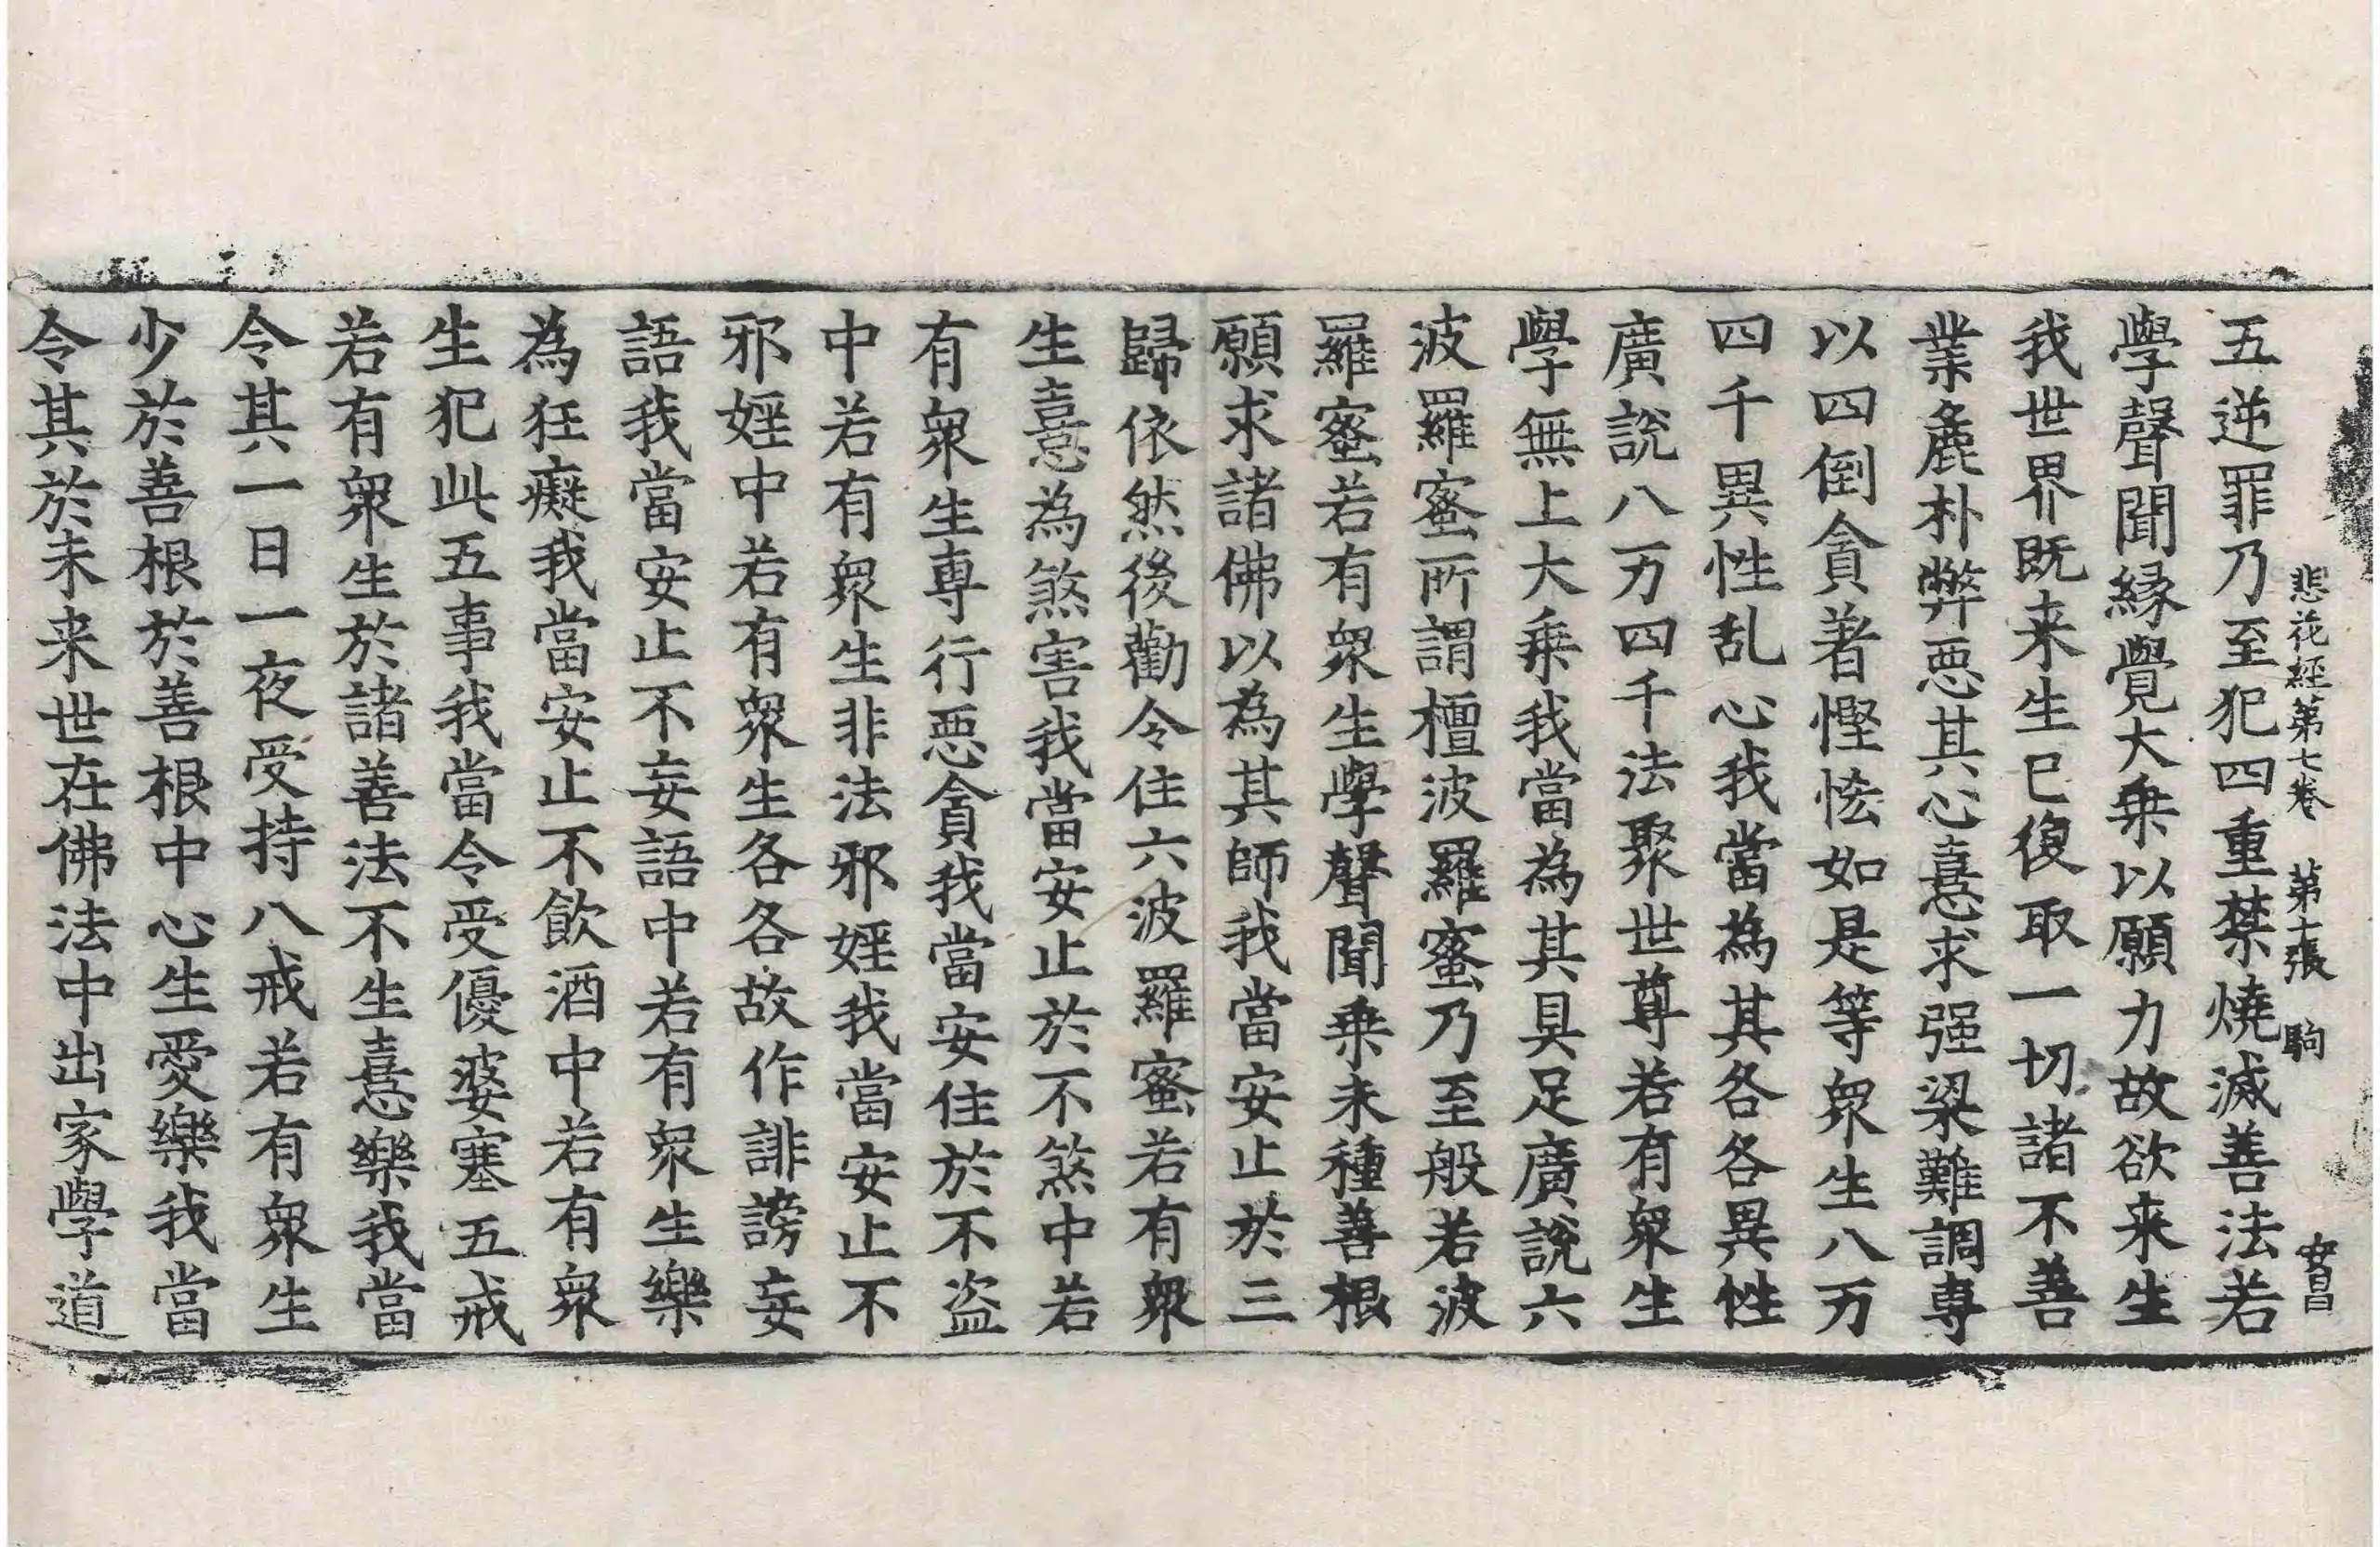 悲花經第七卷　第七張　駒　安昌
五逆罪乃至犯四重禁燒滅善法若
學聲聞縁覺大乗以願力故欲来生
我世界既来生已復取一切諸不善
業麁朴弊惡其心憙求强梁難調專
以四倒貪著慳恡如是等衆生八万
四千異性乱心我當為其各各異性
廣說八万四千法聚世尊若有衆生
學無上大乗我當為其具足廣說六
波羅蜜所謂檀波羅蜜乃至般若波
羅蜜若有衆生學聲聞乗未種善根
願求諸佛以為其師我當安止於三
歸依然後勸令住六波羅蜜若有衆
生憙為煞害我當安止於不煞中若
有衆生專行惡貪我當安住於不盗
中若有衆生非法邪婬我當安止不
邪婬中若有衆生各各故作誹謗妄
語我當安止不妄語中若有衆生樂
為狂癡我當安止不飲酒中若有衆
生犯此五事我當令受優婆塞五戒
若有衆生於諸善法不生憙樂我當
令其一日一夜受持八戒若有衆生
少於善根於善根中心生愛樂我當
令其於未来世在佛法中出家學道